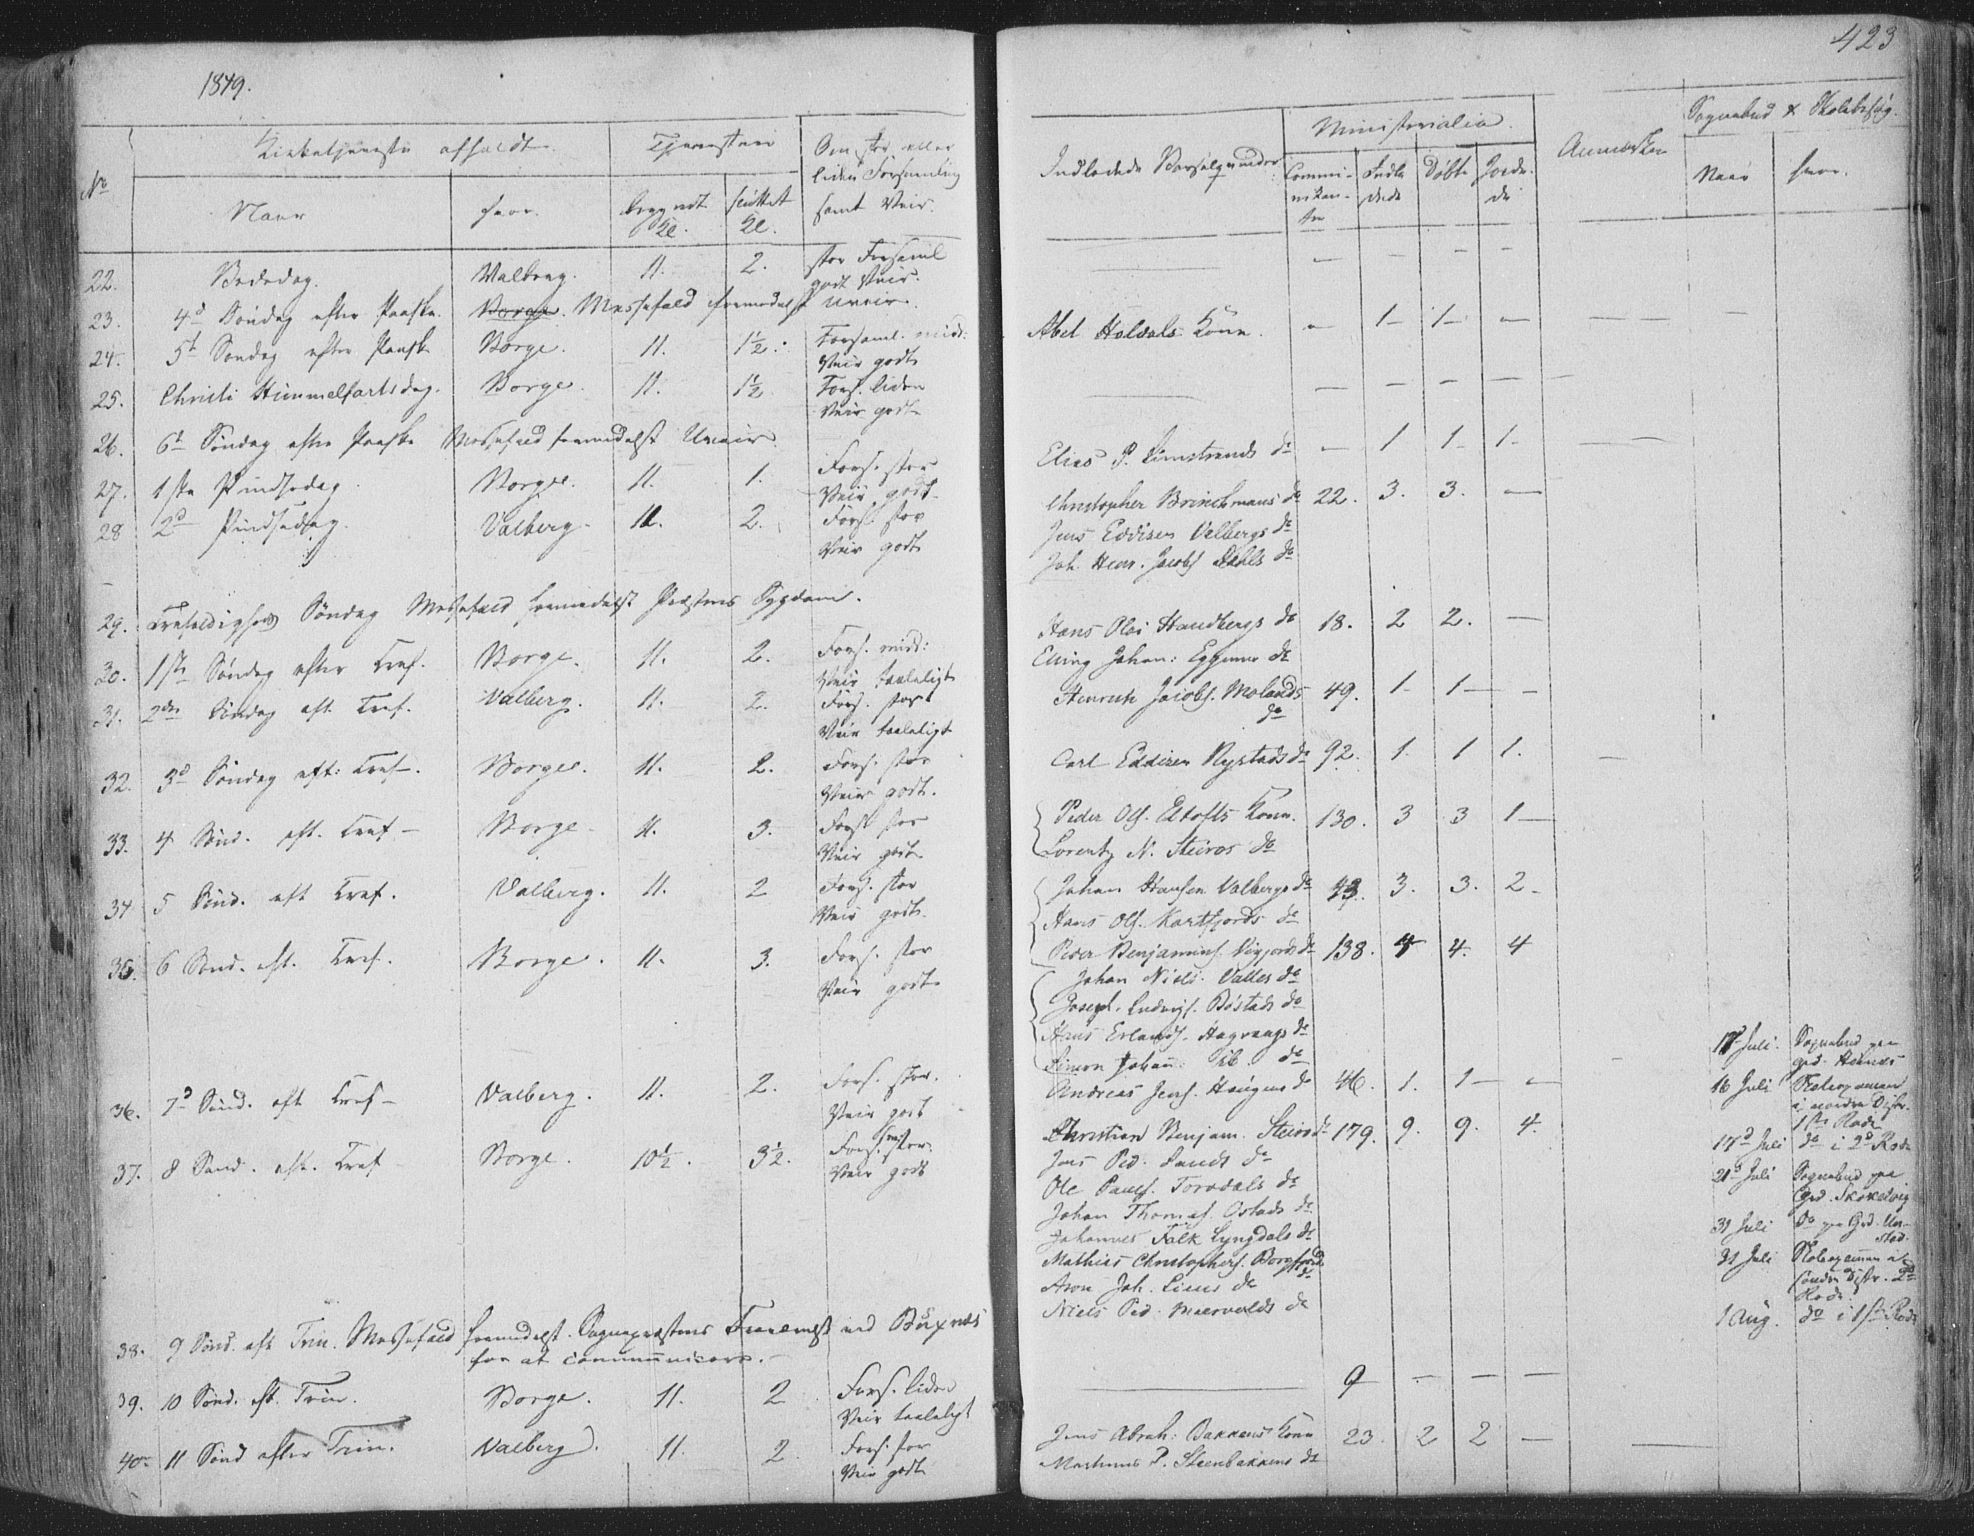 1849.
423
No
Kirketjeneste afholdt
Tjenesten
Om stor eller
liden Forsamling
samt Veir.
Naar
hvor.
begyndt
Kl.
sluttet
Kl.
Indledede Barselqvinder
Ministerialia.
Communikanter
Indledede
Døbte
Jordede
Anmærkn
Sognebud & Skolebesøg.
Naar
hvor.
22. Bededag. Valberg. 11. 2. stor Forsaml
godt Veir.
23. 4d Søndag efter Paaske. Borge. Messefald formedelst Uveir.
24. 5t Søndag efter Paaske Borge. 11. 1½. Forsaml. midd:
Veir godt
Abel Holdals Kone. — 1 1 —
25. Christi Himmelfartsdag. Borge. 11. 1½ Fors. liden
Veir godt
26. 6t Søndag efter Paaske Messefald formedelst Uveir
27. 1ste Pindsedag. Borge. 11. 1. Fors. stor
Veir godt.
Elias P. do — 1 1 1
28 2d Pindsedag. Valberg. 11. 2. Fors. stor
Veir godt
Christopher Brinchmans do 22. 3. 3. —
Jens Eddisen Valbergs do
Joh. Henr. Jacobs Dahls do
29. Trefoldigheds Søndag Messefald formedelst Præstens Sygdom.
30. 1ste Søndag efter Tref. Borge. 11. 2. Fors. midd:
Veir taaleligt
Hans Olai Handbergs do 18. 2 2. —
Elling Johan: Eggum do
31. 2den Søndag eft. Tref. Valberg. 11. 2. Fors. stor
Veir taaleligt
Henrich Jacobs. Molands 49. 1 1 —
do
32. 3d Søndag eft: Tref. Borge. 11. 2. Fors. stor
Veir godt.
Carl Eddisen Rystads do 92. 1. 1 1.
33. 4 Sønd. eft. Tref Borge 11. 3. Fors. stor
Veir godt
Peder Ols. Eltofts Kone. 130. 3 3 1
Lorentz N. Steiros do
34 5 Sønd. eft Tref. Valberg. 11. 2 Fors. stor
Veir godt.
Johan Hansen Valbergs do 43. 3. 3. 2
Hans Ols. Kartfjords do
35. 6 Sønd. eft. Tref. Borge. 11. 3. Fors. stor
Veir godt
Peder Benjamins. do 138. 4 4. 4
Johan Niels. Valles do
Joseph Ludvigs. Bøstads do
Hans Erlands. Hagvaags do
Simon Johan: do
17 Juli. Sognebud paa
36. 7d Sønd. eft Tref Valberg. 11. 2. Fors. stor.
Veir godt
Andreas Jens. Haugens do 46. 1. 1 —
16 Juli
i nordre Distr.
1ste Rode
37. 8 Sønd. eft. Tref Borge. 10½. 3½. Fors. stor.
Veir godt
Christian Benjam. Steiro do 179. 9. 9. 4.
Jens Ped. Sands do
Ole Pauls. Torvdals do
Johan Thomas. Ostads do
Johannes Falk Lyngdals do
Mathias Christophers. Borgfjord
do
Aron Joh. Liens do
Niels Ped. Mærvolds do
17d Juli do i 2d Rode
21d Juli Sognebud paa
Grd. Skokelvig
31 Juli do paa Grd. Unstad.
31 Juli
søndre Distr. 2den
Rode.
1 Aug. do i 1ste Rode
38. 9 Sønd. eft Trin. Messefald formedelst Sognepræstens Fraværelse ved Buxnæs
for at communicere.
39. 10 Sønd. eft. Trin. Borge. 11. 2 Fors. liden
Veir taaleligt
9 — — —
40. 11 Sønd efter Trin. Valberg. 11. 2 Fors. stor
Veir godt
Jens Abrah: Bakkens Kone 23. 2 2 —
Martinus P. Steenbakkens do